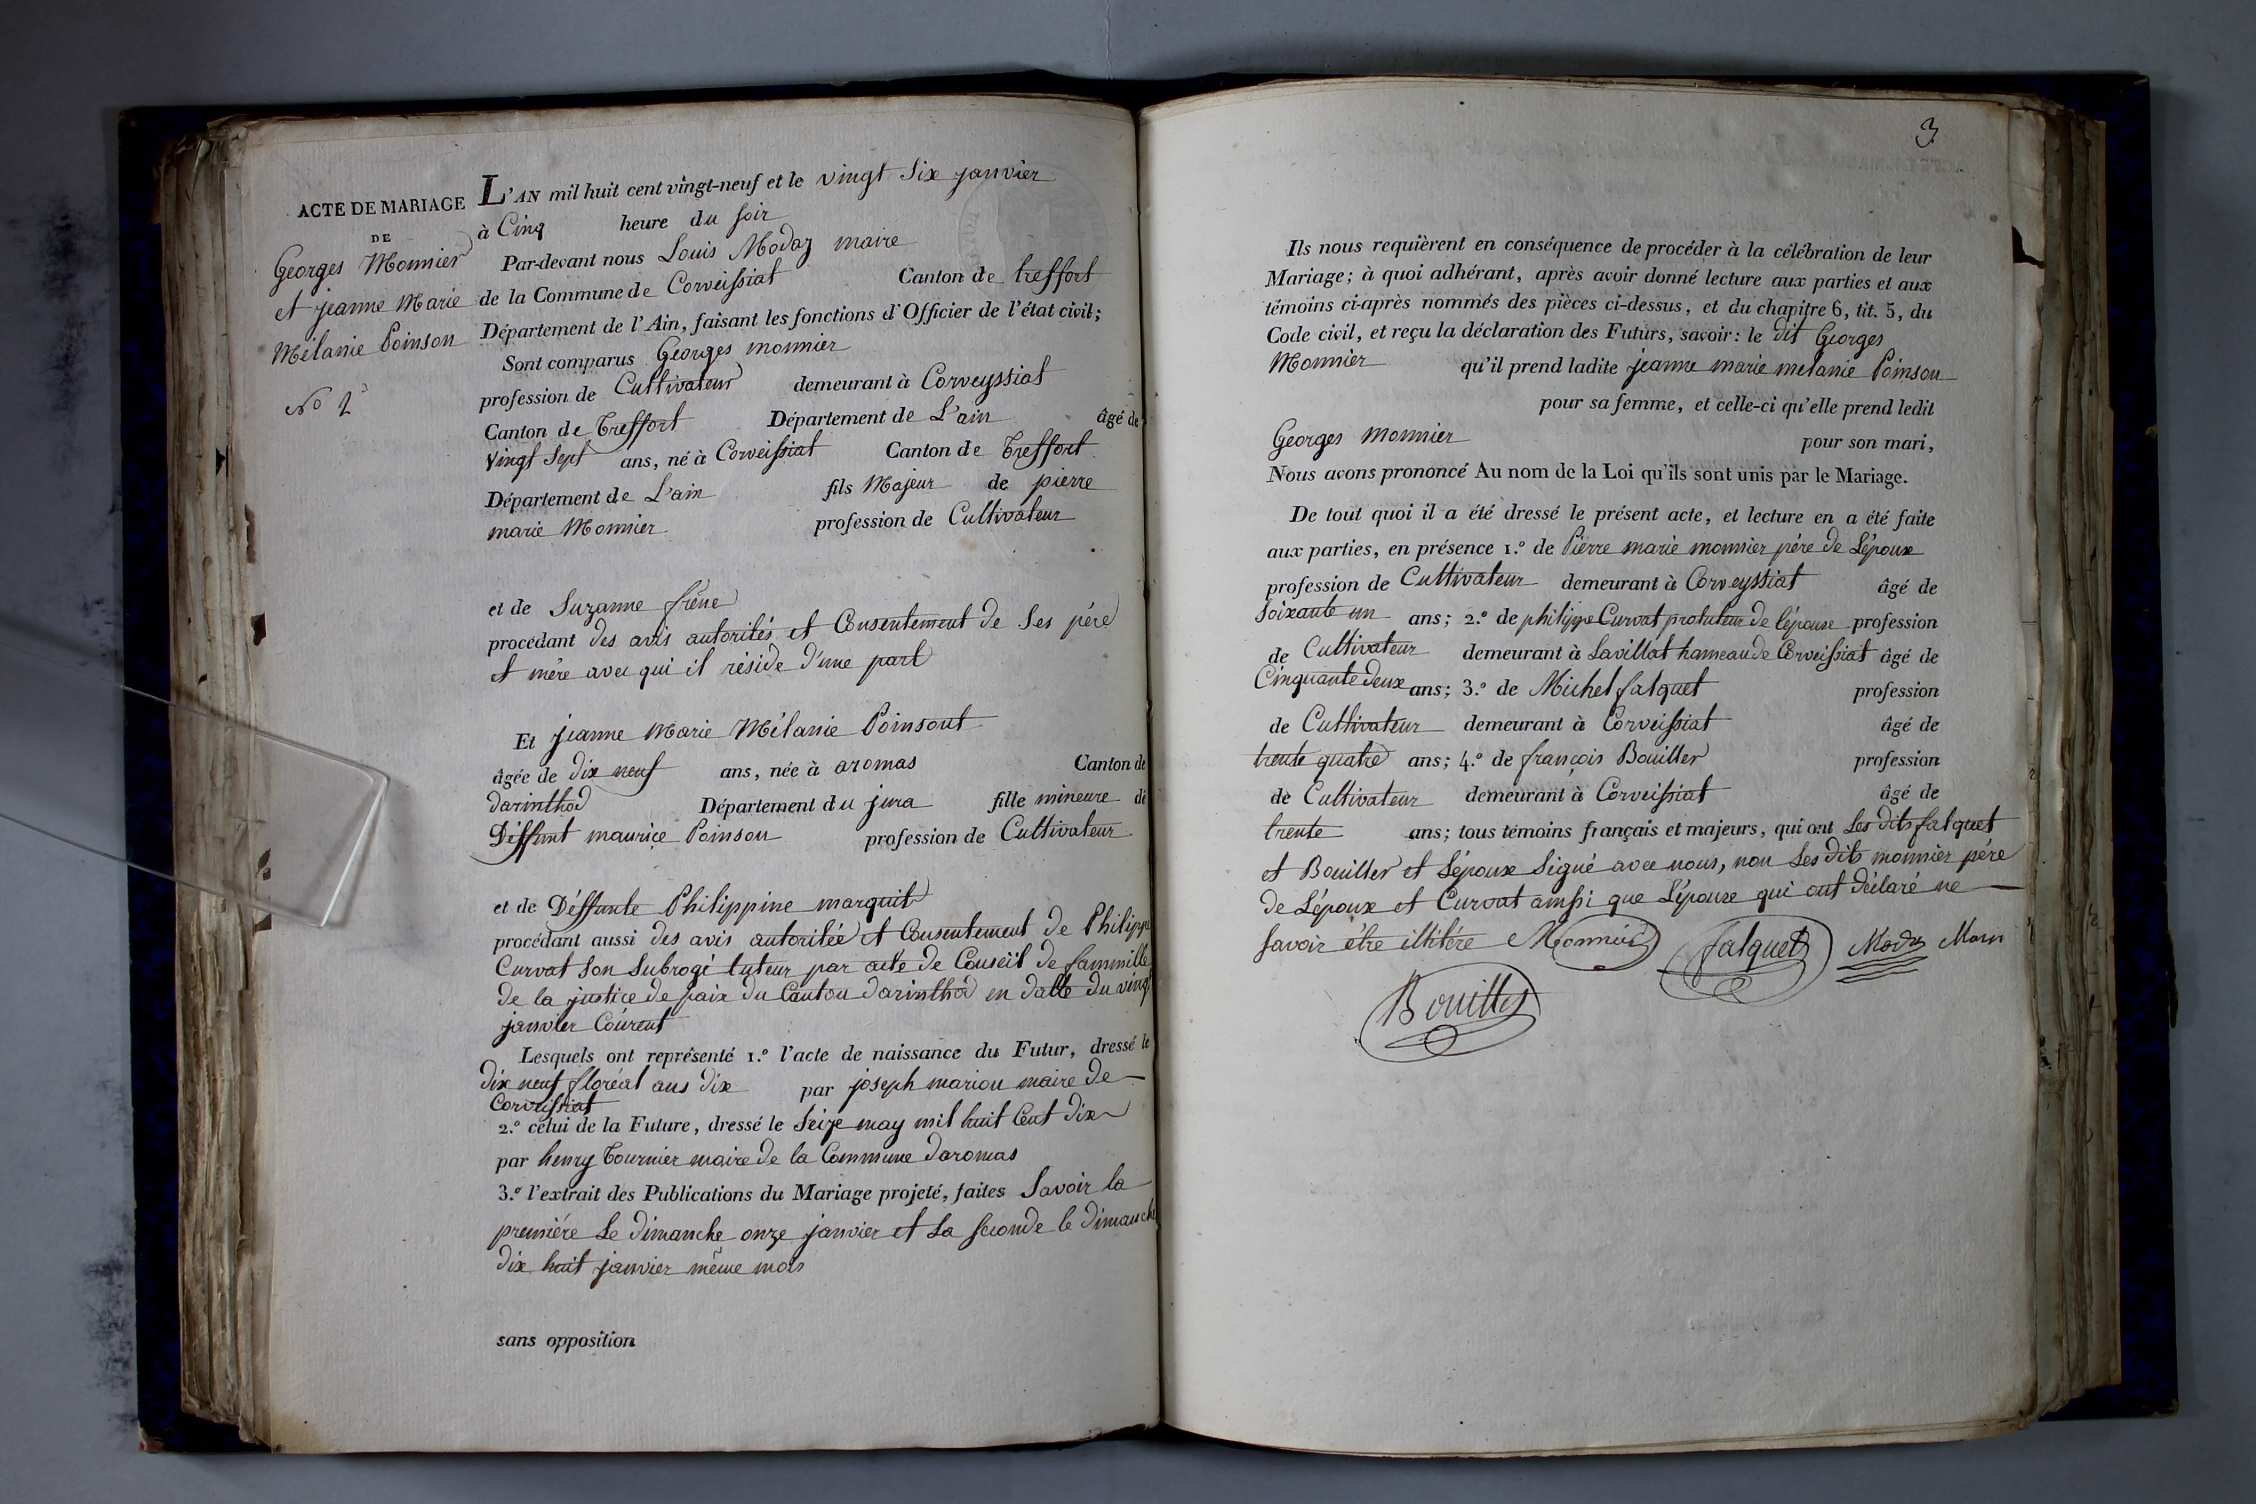 ACTE DE MARIAGE
DE
Georges Monnier
et jeanne Marie
Mélanie Poinson
No 2
L'AN mil huit cent vingt-neuf et le vingt Six janvier
à Cinq heure du soir
Par-devant nous Louis Moday maire
de la Commune de Corveissiat Canton de treffort
Département de l'Ain, faisant les fonctions d'Officier de l'état civil;
Sont comparus Georges monnier
profession de Cultivateur demeurant à Corveyssiat
Canton de Treffort Département de L'ain âgé de
Vingt Sept ans, né à Corveissiat Canton de Treffort
Département de L'ain fils Majeur de pierre
marie Monnier profession de Cultivateur
et de Suzanne frêne
procédant des avis autorités et Consentement de Ses pére
et mére avec qui il réside d'une part
Et jeanne Marie Mélanie Poinsont
âgée de dix neuf ans, née à aromas Canton de
darinthod Département du jura fille mineure de
Déffunt maurice Poinson profession de Cultivateur
et de Déffunte Philippine marquit
procédant aussi des avis autoritée et Consentement de Philippe
Curvat Son Subrogé tuteur par acte de Conseil de fammille
de la justice de paix du Canton darinthod en datte du vingt
janvier Courent
Lesquels ont représenté 1.º l'acte de naissance du Futur, dressé le
dix neuf floréal ans dix par joseph mariou maire de
Corveissiat
2.º celui de la Future, dressé le Seize may mil huit Cent dix
par henry Tournier maire de la Commune daromas
3.º l'extrait des Publications du Mariage projeté, faites Savoir la
premiére Le dimanche onze janvier et La Seconde le dimanche
dix huit janvier même mois
sans opposition
3
Ils nous requièrent en conséquence de procéder à la célébration de leur
Mariage; à quoi adhérant, après avoir donné lecture aux parties et aux
témoins ci-après nommés des pièces ci-dessus, et du chapitre 6, tit. 5, du
Code civil, et reçu la déclaration des Futurs, savoir: le dit Georges
Monnier qu'il prend ladite jeanne marie melanie Poinson
pour sa femme, et celle-ci qu'elle prend ledit
Georges monnier pour son mari,
Nous avons prononcé Au nom de la Loi qu'ils sont unis par le Mariage.
De tout quoi il a été dressé le présent acte, et lecture en a été faite
aux parties, en présence 1.º de Pierre marie monnier pére de L'époux
profession de Cultivateur demeurant à Corveyssiat âgé de
Soixante un ans; 2.º de philippe Curvat protuteur de l'épouse profession
de Cultivateur demeurant à Lavillat hameau de Corveissiat âgé de
Cinquante deux ans; 3.º de Michel falquet profession
de Cultivateur demeurant à Corveissiat âgé de
trente quatre ans; 4.º de françois Bouiller profession
de Cultivateur demeurant à Corveissiat âgé de
trente ans; tous témoins français et majeurs, qui ont Les dits falquet
et Bouiller et L'époux Signé avec nous, non Les dits monnier pére
de L'époux et Curvat ainssi que L'épouse qui ont déclaré ne
Savoir étre illitére Monnier falquet Moday Maire
Bouiller